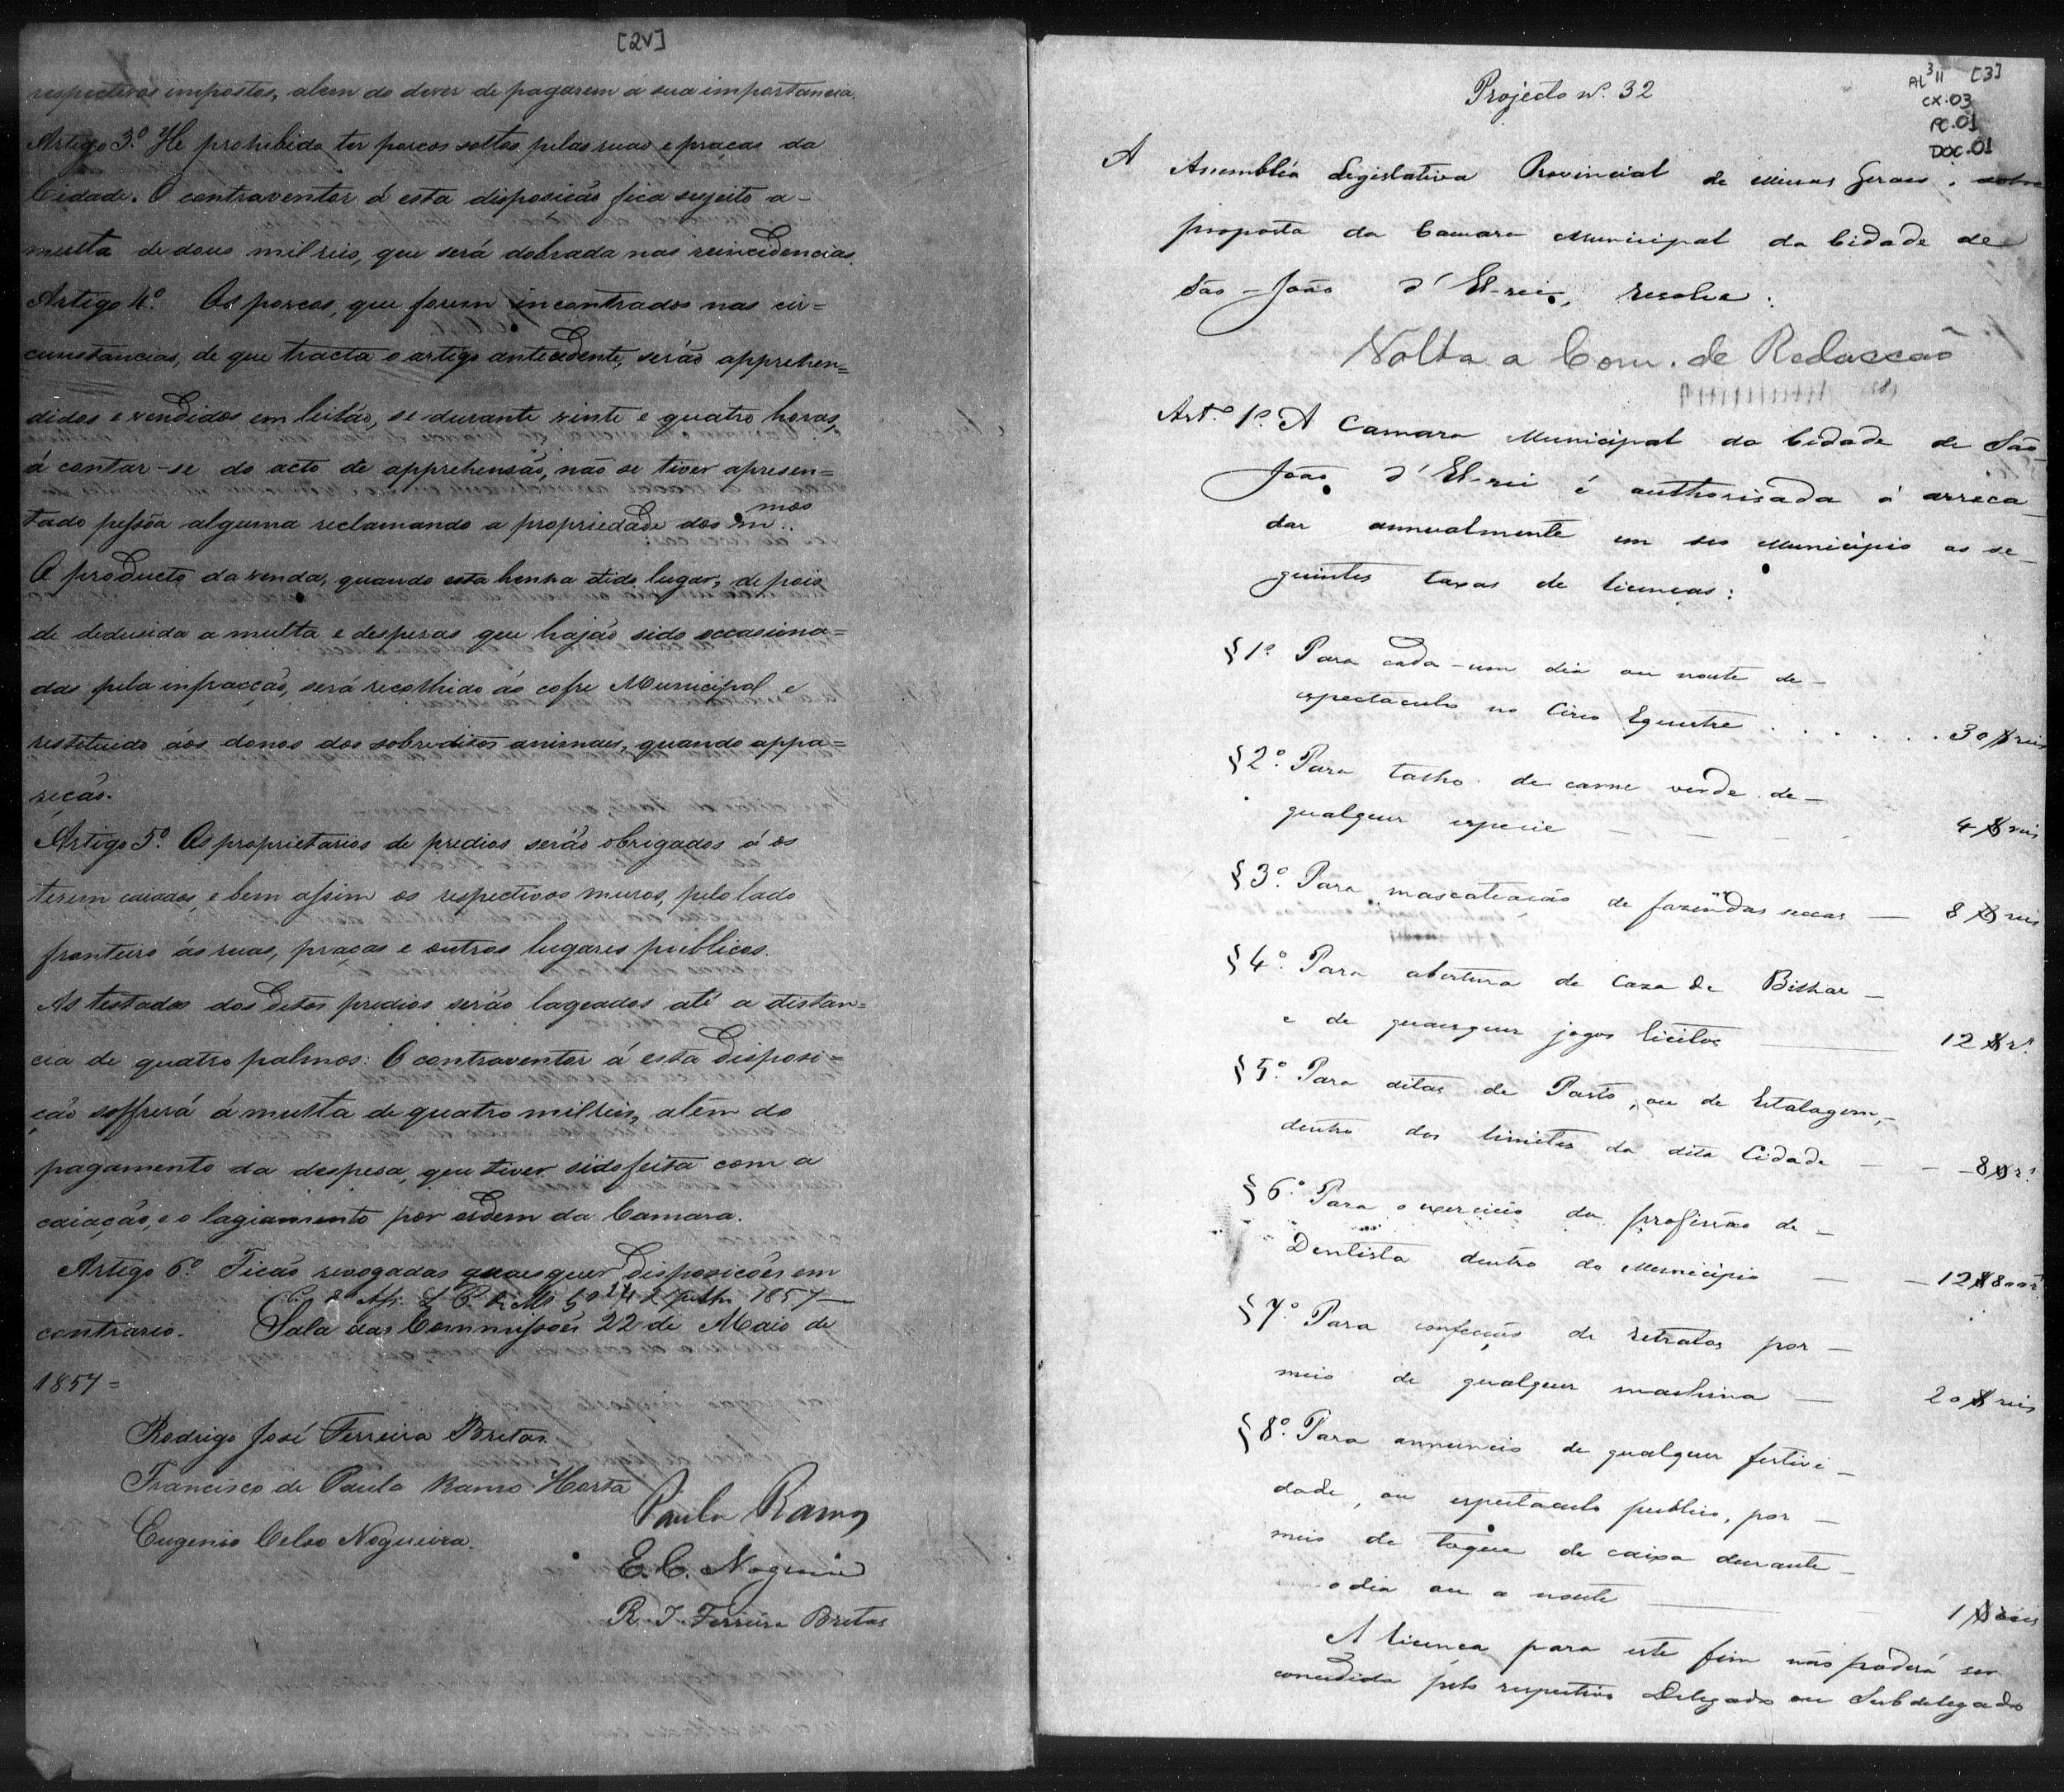 [2V]
respectivos impostos, alem do dever de pagarem a sua importancia.
Artigo 3.º He prohibido ter porcos soltos pelas ruas e praças da
Cidade. O contraventor á esta disposição fica sujeito a-
multa de dous mil reis, que será dobrada nas reincidencias.
Artigo 4.º Os porcos, que forem encontrados nas cir=
cunstancias, de que tracta o artigo antecedente, serão apprehen=
didos e vendidos em leilão, se durante vinte e quatro horas,
á contar-se do acto de apprehensão, não se tiver apresen=
tado pessôa alguma reclamando a propriedade dos m.mos
O producto da venda, quando esta tenha tido lugar, depois
de dedusida a multa e despesas que hajão sido occasiona=
das pela infracção, será recolhido ao cofre Municipal e
restituido áos donos dos sobreditos animaes, quando appa=
reção.
Artigo 5.º Os proprietarios de predios serão obrigados á os
terem caiados, e bem assim os respectivos muros, pelo lado
fronteiro ás ruas, praças e outros lugares publicos.
As testadas dos ditos predios serão lageados até a distan=
cia de quatro palmos. O contraventor á esta disposi=
ção soffrerá á multa de quatro mil reis, alem do
pagamento da despesa, que tiver sido feita com a
caiação, e o lagiamento por ordem da Camara.
Artigo 6.º Ficão revogadas quaesquer disposições em
1857
contrario. Sala das Commissões 22 de Maio de
1857=
Rodrigo José Ferreira Bretas.
Francisco de Paula Ramos Horta
Paula Ramos
Eugenio Celso Nogueira.
E. C. Nogueira
R. J. Ferreira Bretas
AL 3 11 [3]
CX.03
PC.01
DOC.01
Projecto n.º 32
A Assembléa Legislativa Provincial de Minas Geraes, sobre
proposta da Camara Municipal da Cidade de
São-João d'El-rei, resolve:
Volta a Com. de Redacção
Art.º 1.º A Camara Municipal da Cidade de São-
João d'El-rei é authorisada á arreca
dar annualmente em seo Municipio as se-
guintes taxas de licenças:
§1º Para cada-um dia ou noute de-
espectaculo no Circo Equestre . . . . . . 30$reis
§2º. Para talho de carne verde de-
qualquer especie — — — 4$reis
§3º. Para mascateação de fazendas seccas — 8$reis
§4º. Para abertura de Caza de Bilhar —
e de quaesquer jogos licitos — 12$r.s
§5º. Para ditas de Pasto, ou de Estalagem,-
dentro dos limites da dita Cidade — — 8$r.s
§6º. Para o exercicio da profissão de —
Dentista dentro do Municipio — — 12$800r.s
§7º. Para confecção de retratos por —
meio de qualquer machina — 20$reis
§8º. Para annuncio de qualquer festivi —
dade, ou espectaculo publico, por —
meio de toque de caixa durante —
o dia ou a noute — 1$reis
A licença para este fim não poderá ser
concedida pelo respectivo Delegado ou Subdelegado